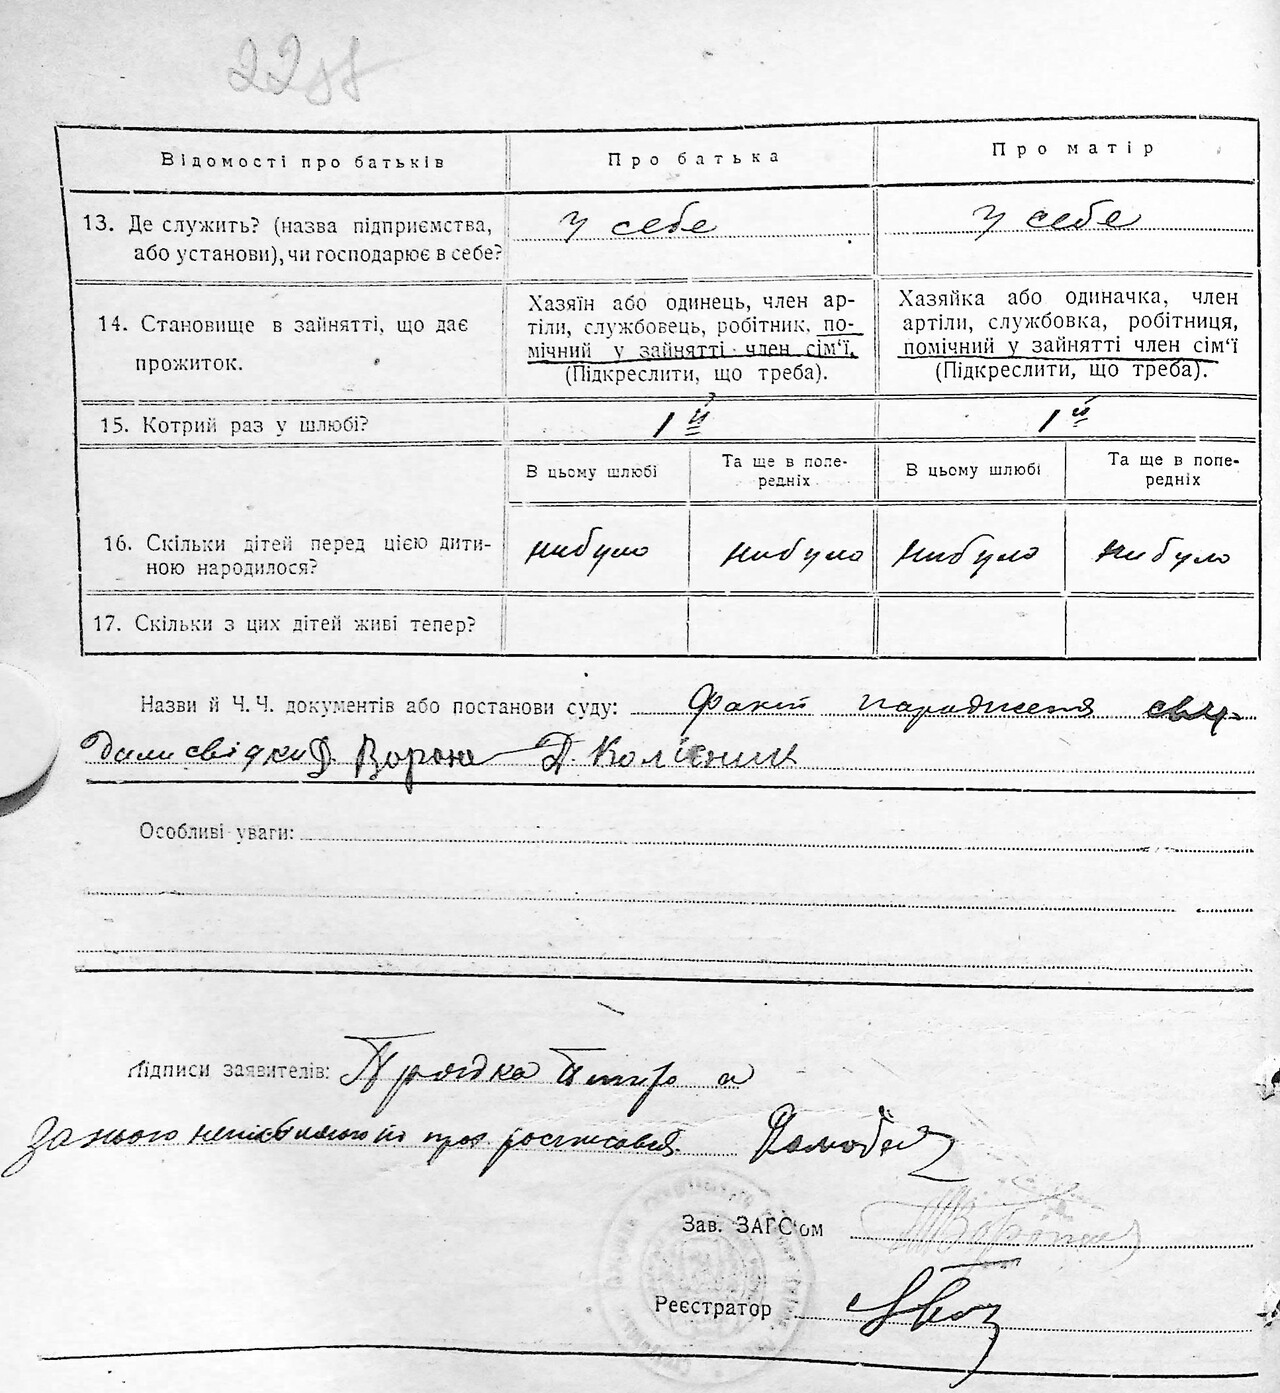 Відомості про батьків
Про батька
Про матір
13. Де служить? (назва підприємства, або установи), чи господарює в себе?
У себе
У себе
14. Становище в зайнятті, що дає прожиток.
Хазяїн або одинець, член ар-
тіли, службовець, робітник, по-
мічний у зайнятті член сім'ї.
(Підкреслити, що треба).
Хазяйка або одиначка, член
артіли, службовка, робітниця,
помічний у зайнятті член сім'ї
(Підкреслити, що треба).
15. Котрий раз у шлюбі?
1й
1й
В цьому шлюбі
Та ще в попе-
редніх
В цьому шлюбі
Та ще в попе-
редніх
16. Скільки дітей перед цією дити-
ною народилося?
нибуло
нибуло
нибуло
нибуло
17. Скільки з цих дітей живі тепер?
Назви й Ч.Ч. документів або постанови суду: Факт народження
свідки Д. Ворона Д. Колісник
Особливі уваги:
Підписи заявителів:
за нього
Зав. ЗАГС'ом
Реєстратор